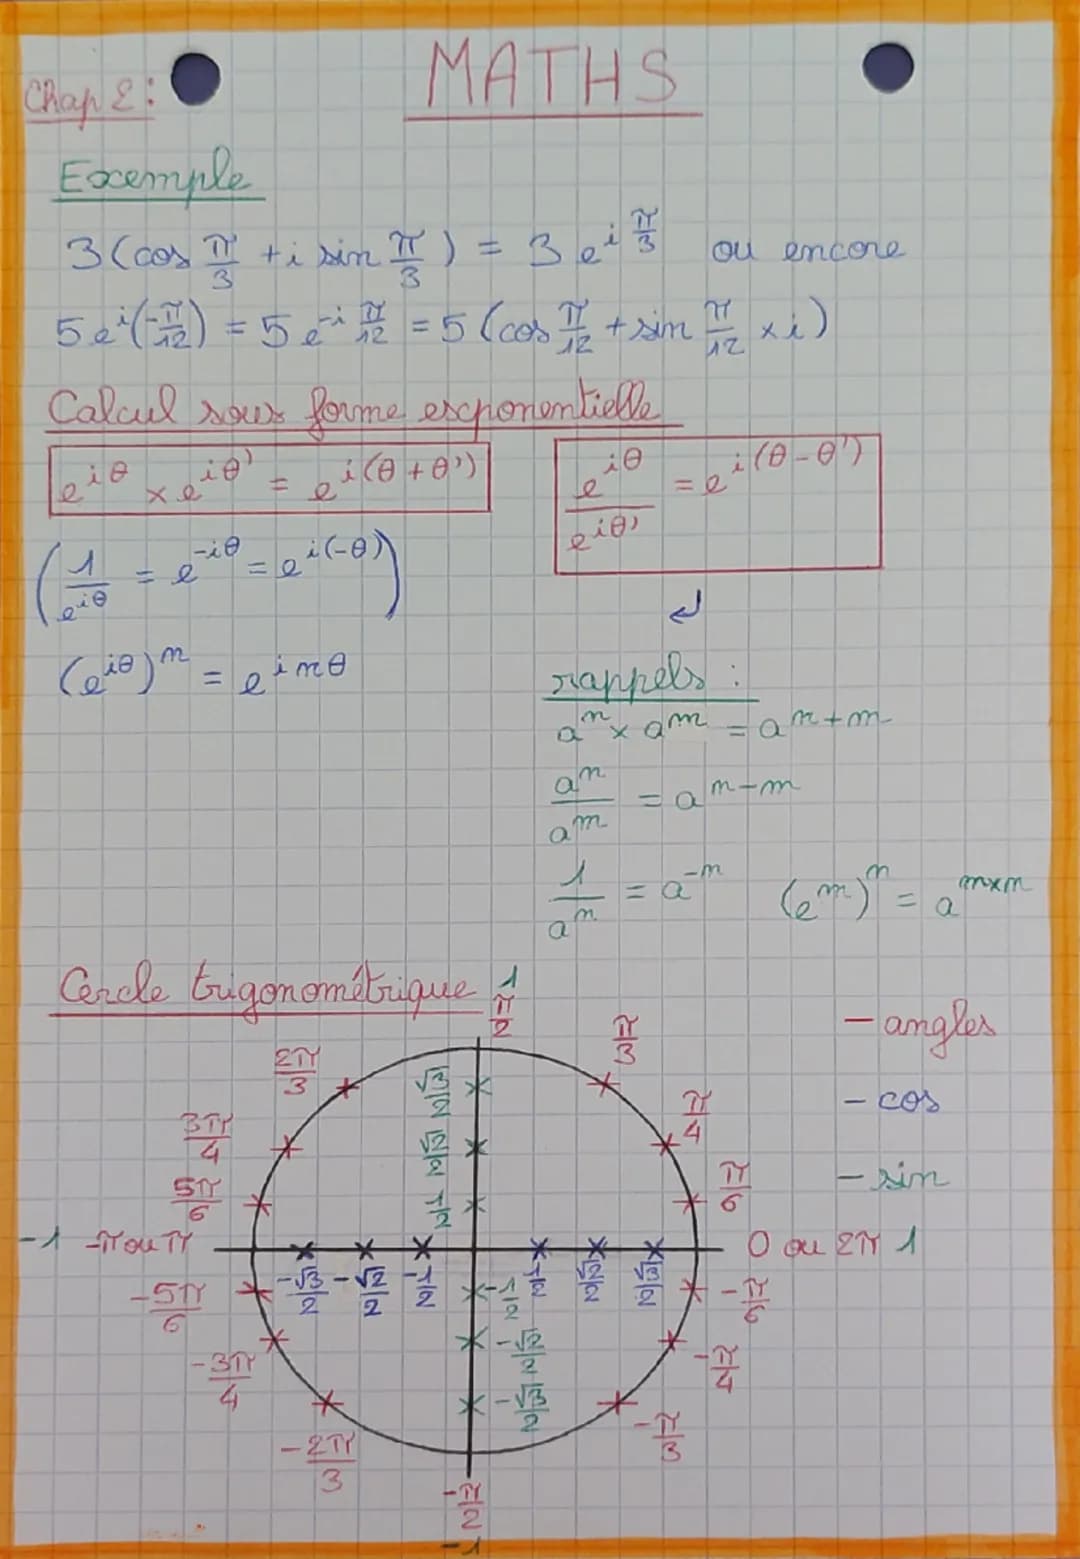 MATHS
Chap 2:
Exemple
3(cos π/3 + i sin π/3) = 3 e^{i π/3} ou encore
5 e^{i(-π/12)} = 5 e^{-i π/12} = 5 (cos π/12 + sin π/12 × i)
Calcul sous forme exponentielle
e^{iθ} × e^{iθ'} = e^{i(θ+θ')}
e^{iθ}/e^{iθ'} = e^{i(θ-θ')}
(1/e^{iθ} = e^{-iθ} = e^{i(-θ)})
(e^{iθ})^n = e^{inθ}
rappels :
a^n × a^m = a^{n+m}
a^n/a^m = a^{n-m}
1/a^n = a^{-n} (e^m)^n = a^{m×n}
Cercle trigonométrique
1
π/2
- angles
- cos
- sin
2π/3
π/3
3π/4
π/4
5π/6
π/6
√3/2
√2/2
1/2
-1 -π ou π
0 ou 2π 1
-√3/2 -√2/2 -1/2 1/2 √2/2 √3/2
-1/2
-√2/2
-√3/2
-5π/6
-π/6
-3π/4
-π/4
-2π/3
-π/3
-π/2
-1